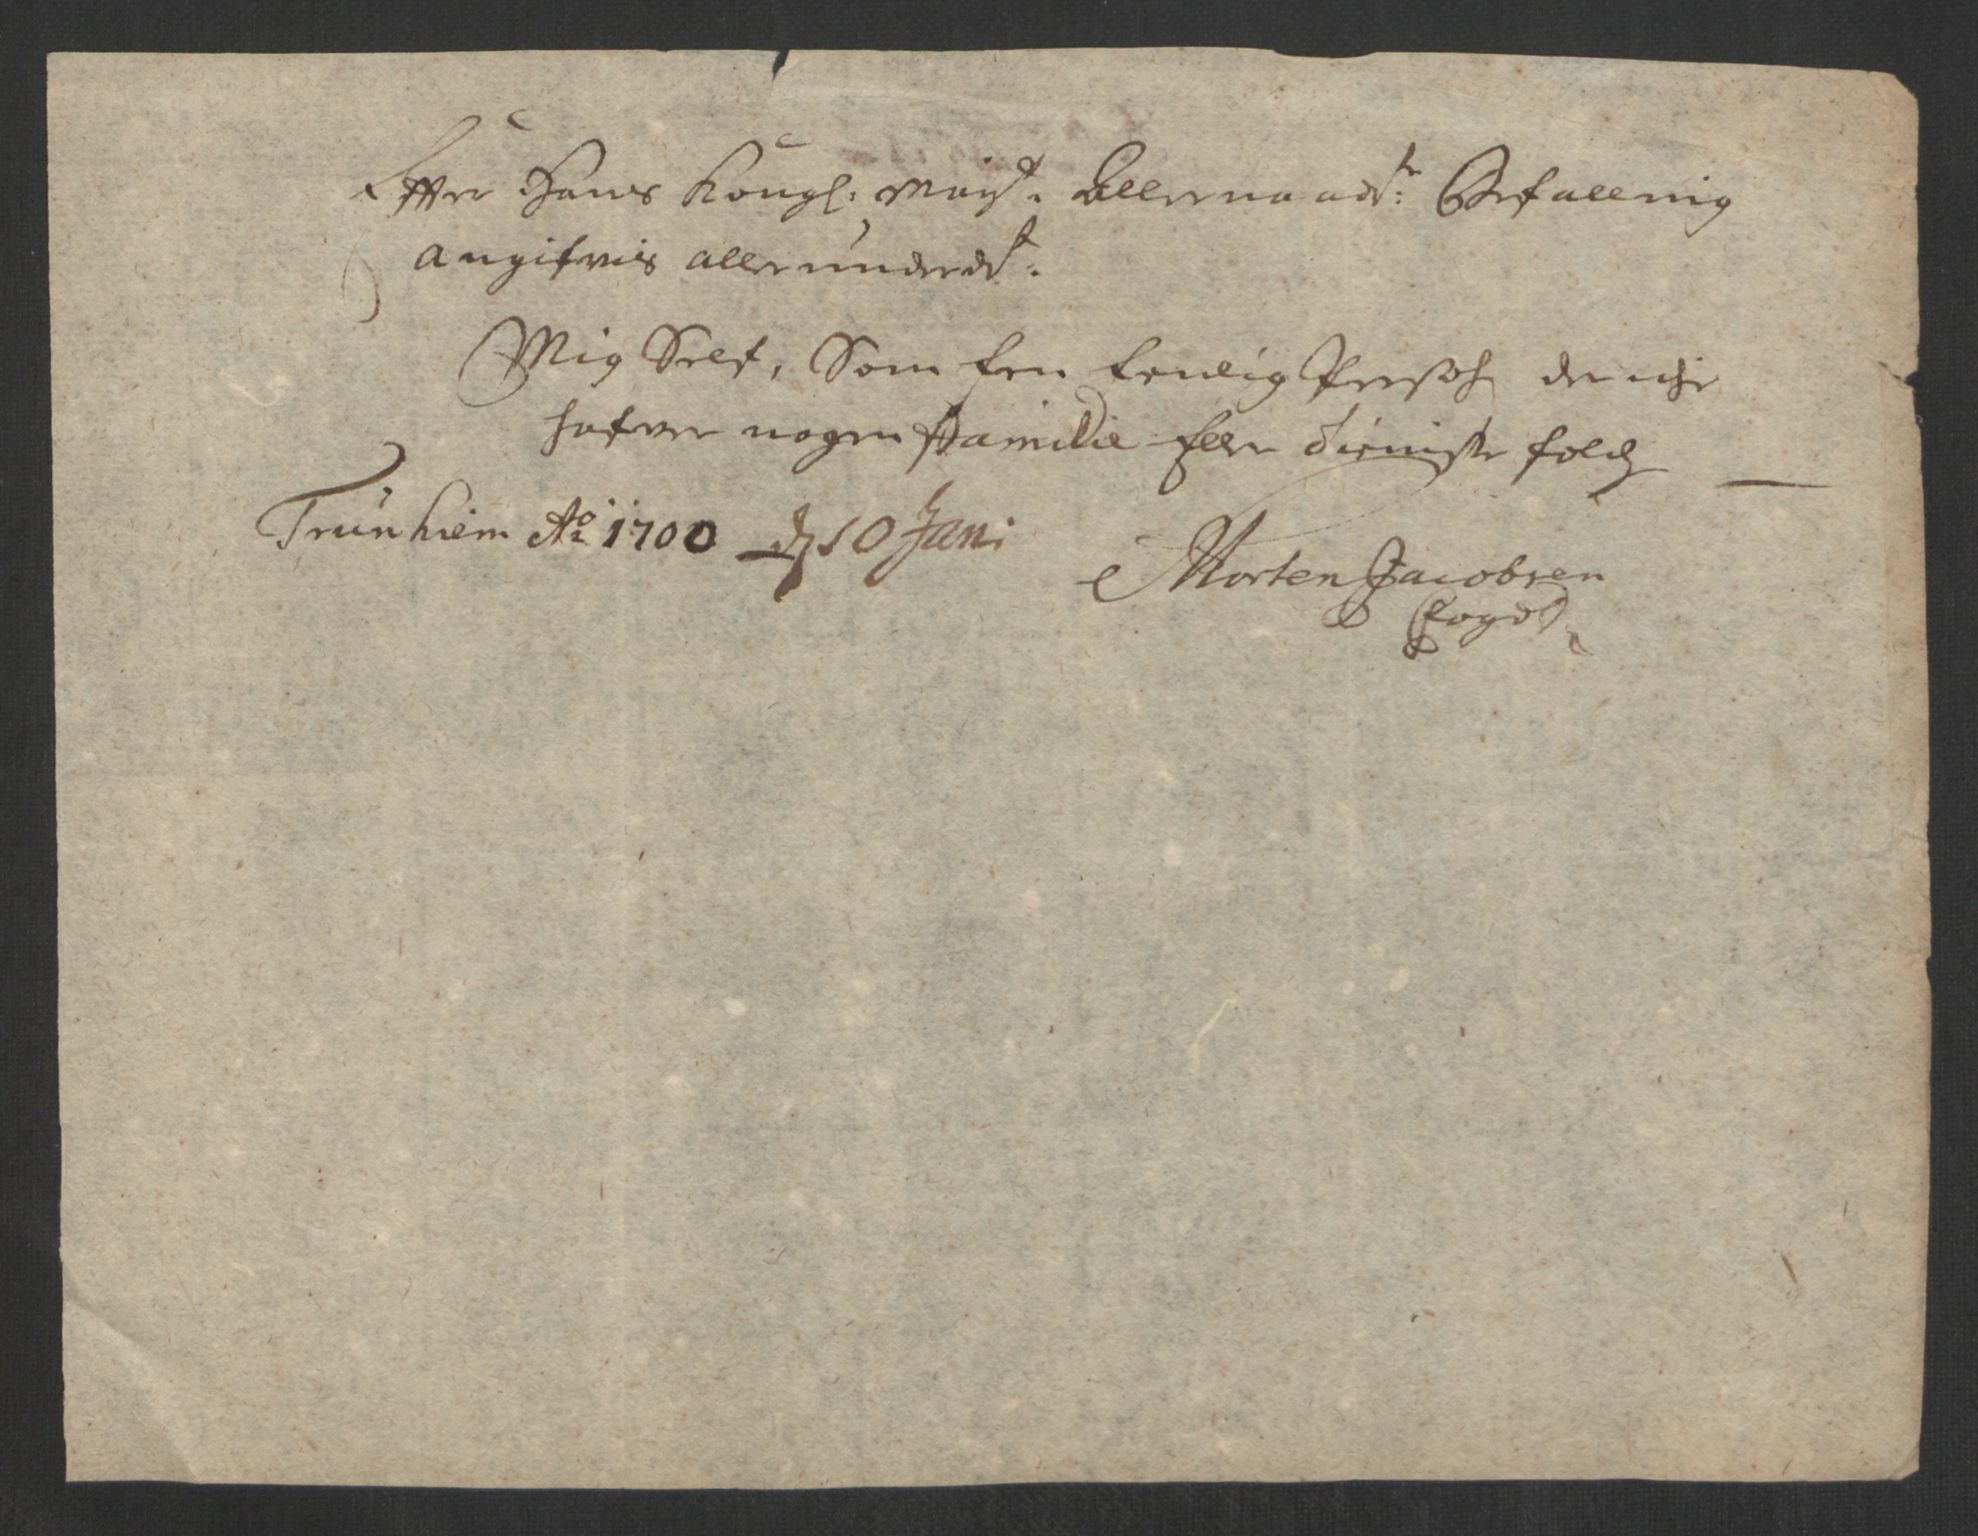 Effter Hans Kongl: Mayt. Allernaadste: Befalling
angifvis allerunderdt.
Mig Self, Som Een Eenlig Persohn der iche
hafver nogen Familie Eller tieniste folch
Trünhiem Ao 1700 d 10 Jani
Morten Jacobsen
Fogd